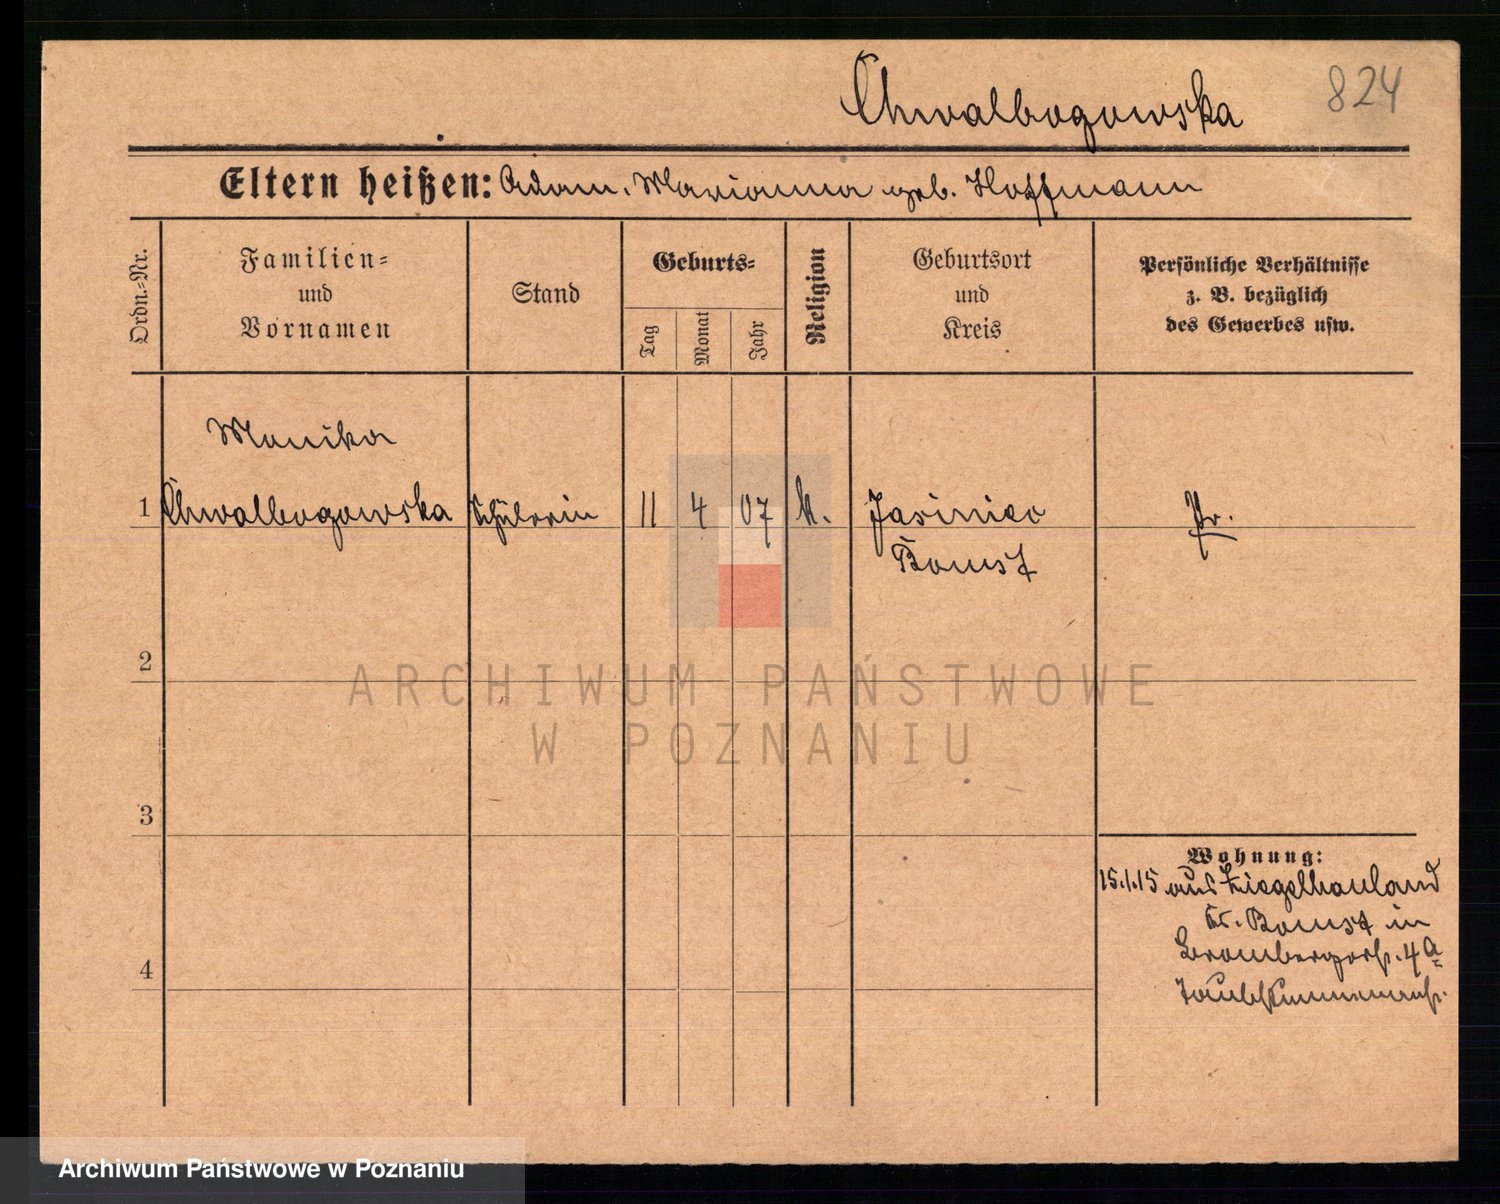 Chwalbogowska 824
Eltern heißen: Adam, Marianna geb. Hoffmann
Ordn.-Nr.
Familien-
und
Vornamen
Stand
Geburts-
Tag
Monat
Jahr
Religion
Geburtsort
und
Kreis
Persönliche Verhältnisse
z. B. bezüglich
des Gewerbes usw.
Monika
1 Chwalbogowska Schülerin 11 4 07 k. Jasiniec Pr.
Bomst
2
ARCHIWUM PAŃSTWOWE
W POZNANIU
3
Wohnung:
15.1.15 aus Ziegelhauland
Kr. Bomst in
Brombergerst. 4a
4
Taubstummenanst.
Archiwum Państwowe w Poznaniu